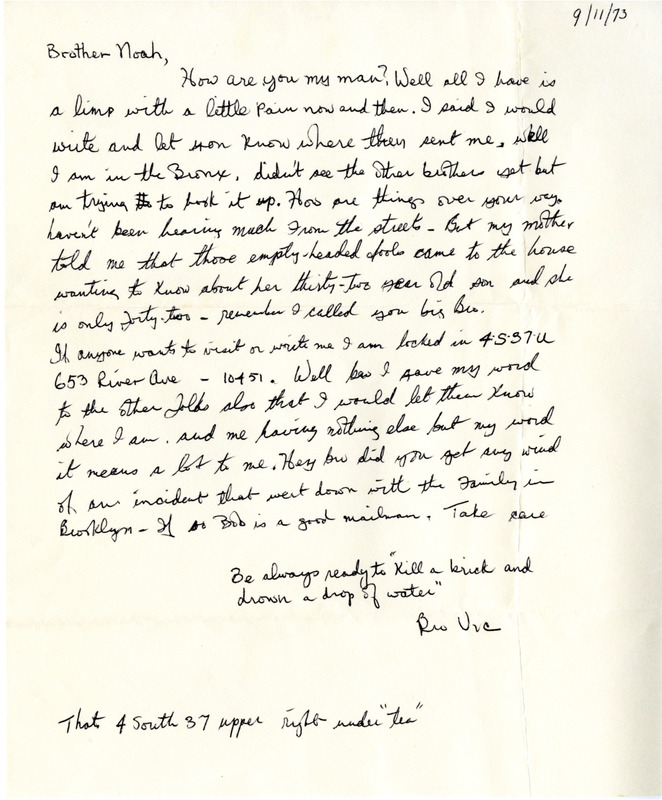 9/11/73
Brother Noah,
How are you my man? Well all I have is
a limp with a little pain now and then. I said I would
write and let you know where they sent me. well
I am in the Bronx, didn't see the other brothers yet but
am trying to hook it up. How are things over your way.
haven't been hearing much from the streets - But my mother
told me that those empty-headed fools came to the house
wanting to know about her thirty-two year old son and she
is only forty-two - remember I called you big Bro.
If anyone wants to visit or write me I am locked in 4-S-37-U
653 River Ave - 10451. Well bro I gave my word
to the other folks also that I would let them know
where I am. and me having nothing else but my word
it means a lot to me. Hey bro did you get any wind
of an incident that went down with the family in
Brooklyn - If so Bob is a good mailman. Take care
Be always ready to "Kill a brick and
drown a drop of water"
Bro Vic
Thats 4 South 37 upper right under "tea"